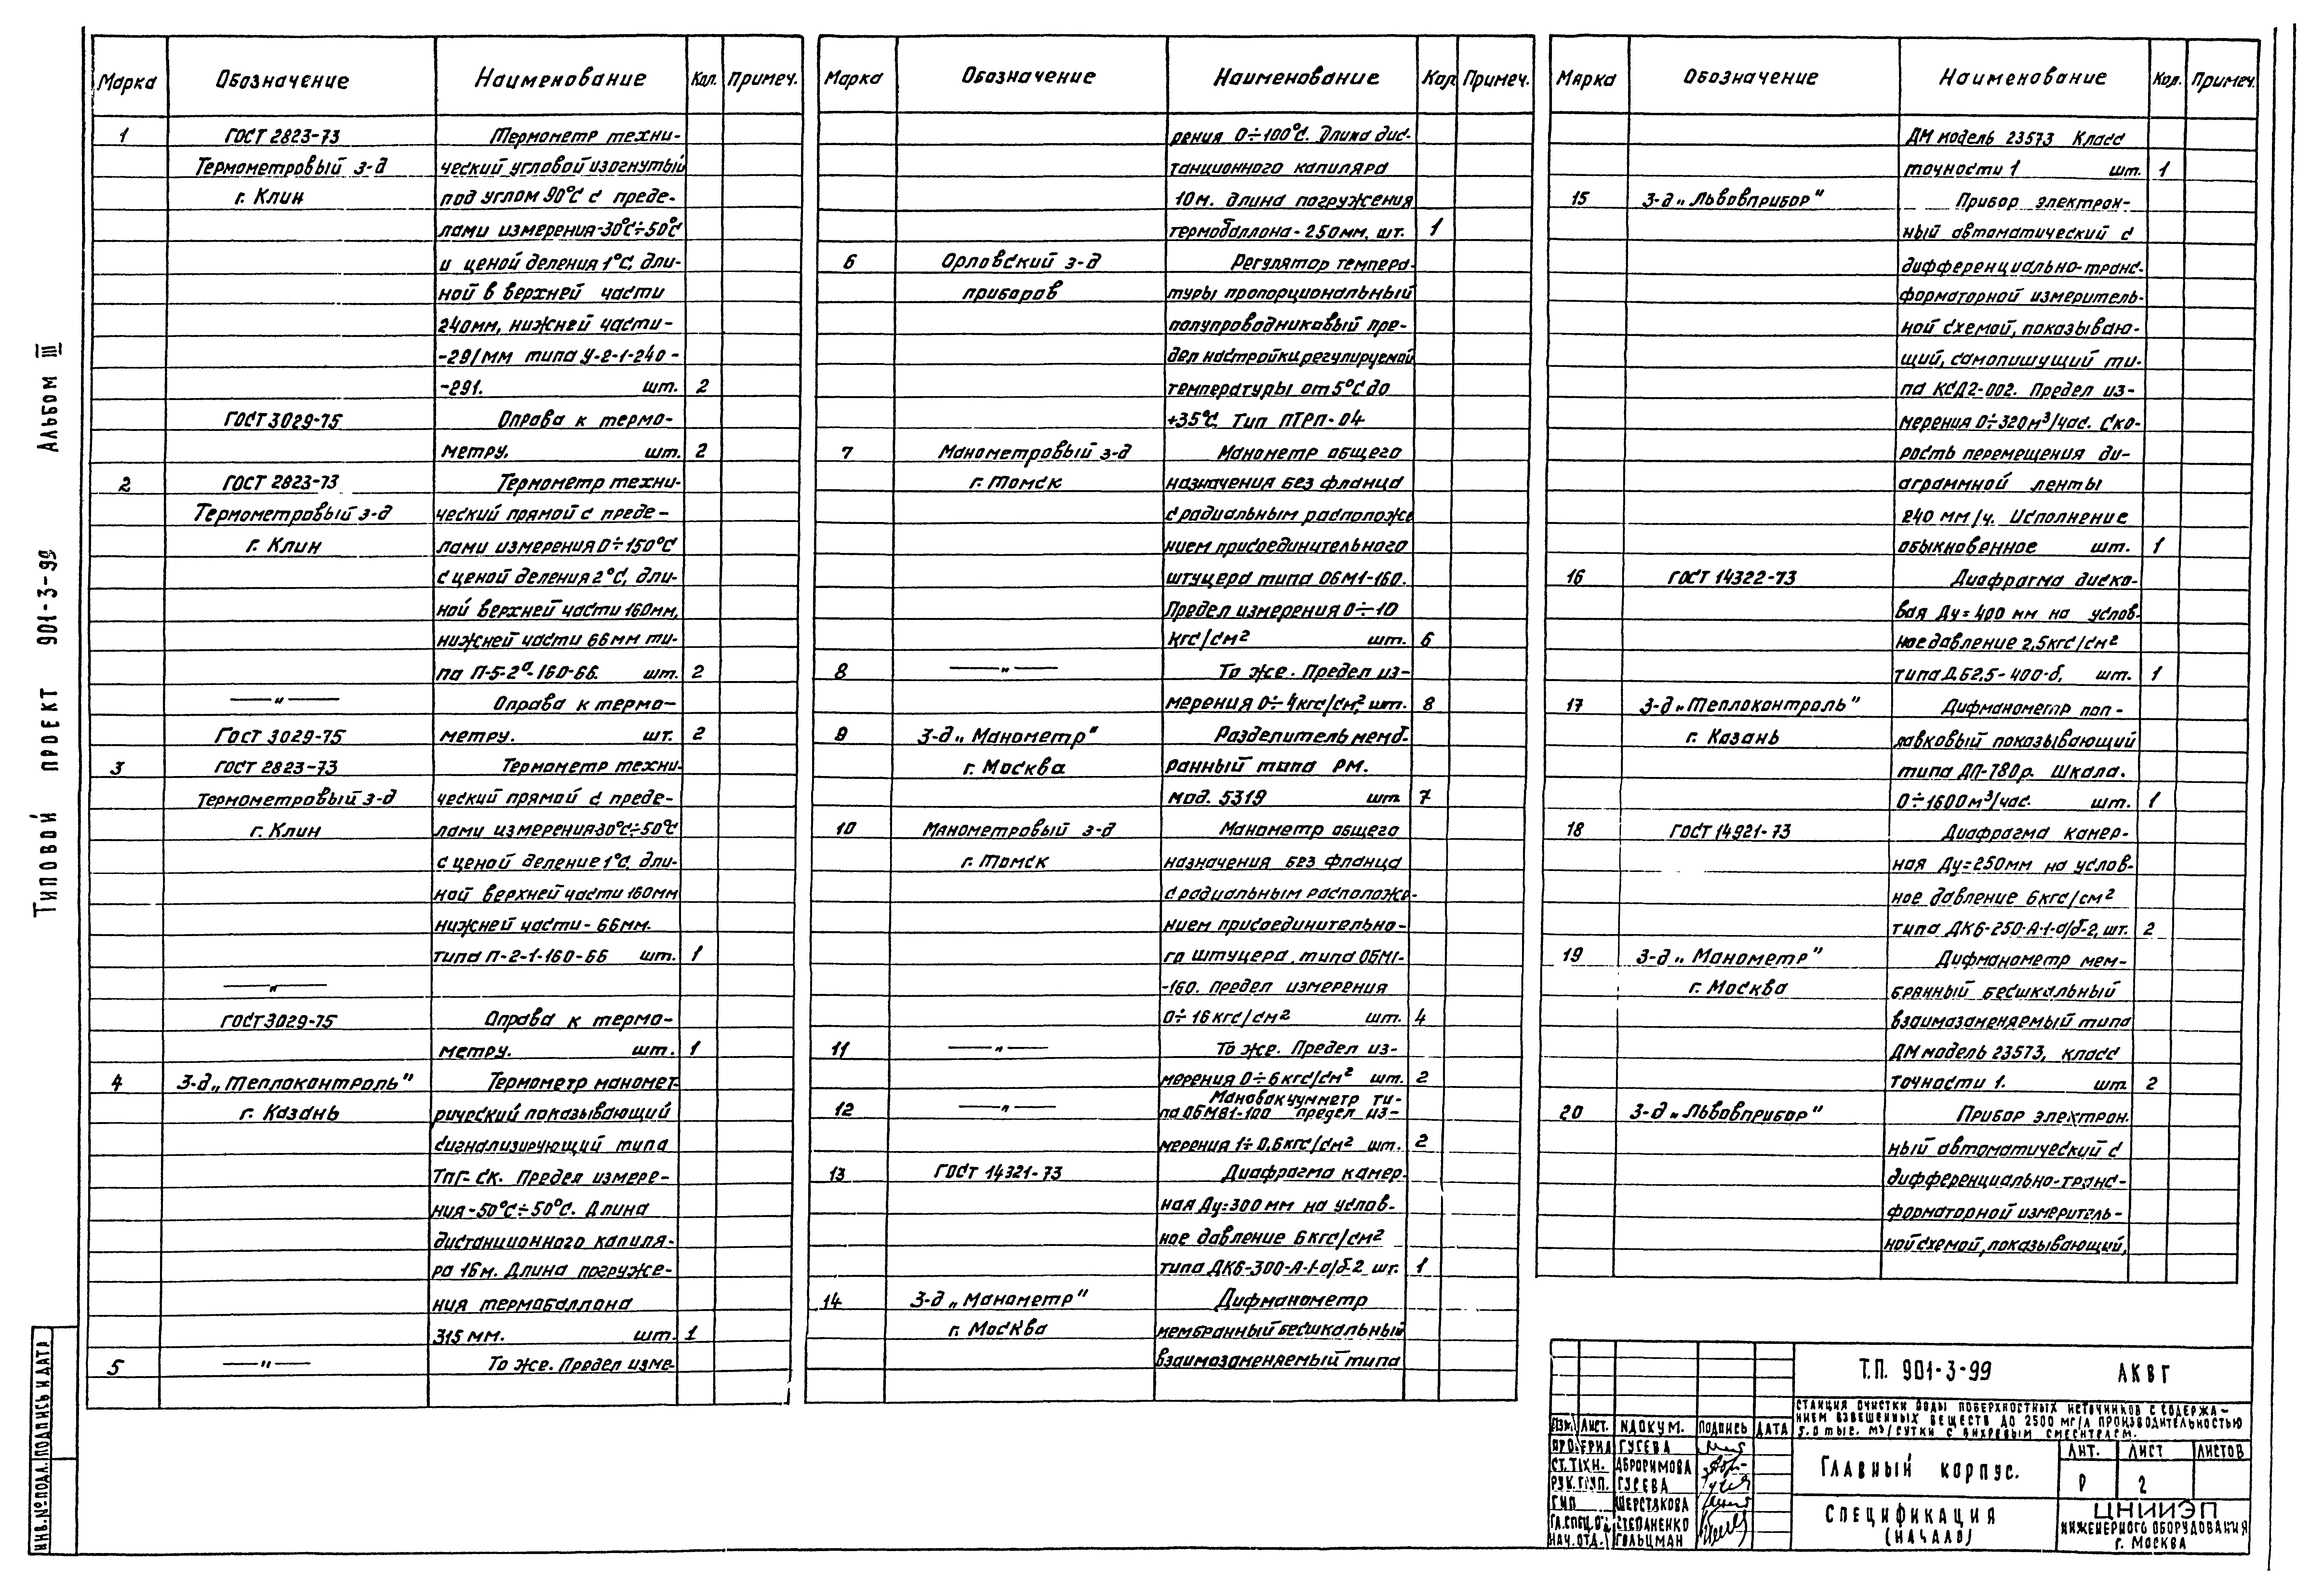 Типовой проект 901-3-99 Альбом III
Марка Обозначение Наименование Кол. Примеч.
1 ГОСТ 2823-73 Термометр техни-
Термометровый з-д ческий угловой изогнутый
г. Клин под углом 90°С с преде-
лами измерения-30°С÷50°С
и ценой деления 1°С, дли-
ной в верхней части
240мм, нижней части-
-291мм типа У-2-1-240-
-291. шт. 2
ГОСТ 3029-75 Оправа к термо-
метру. шт. 2
2 ГОСТ 2823-73 Термометр техни-
Термометровый з-д ческий прямой с преде-
г. Клин лами измерения 0÷150°С
с ценой деления 2°С, дли-
ной верхней части 160мм,
нижней части 66мм ти-
па П-5-2а-160-66. шт. 2
—"— Оправа к термо-
ГОСТ 3029-75 метру. шт. 2
3 ГОСТ 2823-73 Термометр техни-
Термометровый з-д ческий прямой с преде-
г. Клин лами измерения-30°С÷50°С
с ценой деление 1°С, дли-
ной верхней части 160мм
нижней части-66мм.
типа П-2-1-160-66 шт. 1
—"—
ГОСТ 3029-75 Оправа к термо-
метру. шт. 1
4 З-д „Теплоконтроль" Термометр маномет-
г. Казань рический показывающий
сигнализирующий типа
ТПГ-СК. Предел измере-
ния-50°С÷50°С. Длина
дистанционного капиля-
ра 16м. Длина погруже-
ния термобаллона
315 мм. шт. 1
5 —"— То же. Предел изме-
Марка Обозначение Наименование Кол Примеч.
рения 0÷100°С. Длина дис-
танционного капиляра
10м. длина погружения
термобаллона-250мм, шт. 1
6 Орловский з-д Регулятор темпера-
приборов туры пропорциональный
полупроводниковый пре-
дел настройки регулируемой
температуры от 5°С до
+35°С Тип ПТРП-04
7 Манометровый з-д Манометр общего
г. Томск назначения без фланца
с радиальным расположе
нием присоединительного
штуцера типа ОБМ1-160.
Предел измерения 0÷10
кгс/см² шт. 6
8 —"— То же. Предел из-
мерения 0÷4кгс/см², шт. 8
9 З-д „Манометр" Разделитель мемб-
г. Москва ранный типа РМ.
мод. 5319 шт. 7
10 Манометровый з-д Манометр общего
г. Томск назначения без фланца
с радиальным расположе-
нием присоединительно-
го штуцера. типа ОБМ1-
-160. предел измерения
0÷16кгс/см² шт. 4
11 —"— То же. Предел из-
мерения 0÷6кгс/см² шт. 2
12 —"— Мановакуумметр ти-
па ОБМВ1-100 предел из-
мерения 1÷0,6кгс/см² шт. 2
13 ГОСТ 14321-73 Диафрагма камер-
ная Ду=300мм на услов-
ное давление 6кгс/см²
типа ДК6-300-А-1-а/б-2 шт. 1
14 З-д „Манометр" Дифманометр
г. Москва мембранный бесшкальный
взаимозаменяемый типа
Марка Обозначение Наименование Кол. Примеч.
ДМ модель 23573 Класс
точности 1 шт. 1
15 З-д „Львовприбор" Прибор электрон-
ный автоматический с
дифференциально-транс-
форматорной измеритель-
ной схемой, показываю-
щий, самопишущий ти-
па КСД2-002. Предел из-
мерения 0÷320м³/час. Ско-
рость перемещения ди-
аграммной ленты
240 мм/ч. Исполнение
обыкновенное шт. 1
16 ГОСТ 14322-73 Диафрагма диско-
вая Ду=400 мм на услов-
ное давление 2,5кгс/см²
типа ДБ2,5-400-б, шт. 1
17 З-д „Теплоконтроль" Дифманометр поп-
г. Казань лавковый показывающий
типа ДП-780р. Шкала.
0÷1600м³/час. шт. 1
18 ГОСТ 14921-73 Диафрагма камер-
ная Ду=250мм на услов-
ное давление 6кгс/см²
типа ДК6-250-А-1-а/б-2, шт. 2
19 З-д „Манометр" Дифманометр мем-
г. Москва бранный бесшкальный
взаимозаменяемый типа
ДМ модель 23573, класс
точности 1. шт 2
20 З-д „Львовприбор" Прибор электрон.
ный автоматический с
дифференциально-транс-
форматорной измеритель-
ной схемой, показывающий,
Т.П. 901-3-99 АКВГ
Станция очистки воды поверхностных источников с содержа-
нием взвешенных веществ до 2500 мг/л производительностью
5.0 тыс. м³/сутки с вихревым смесителем.
Изм. Лист. N докум. Подпись Дата
Проверил Гусева
Ст.техн. Аброримова
Рук.груп. Гусева
ГИП Шерстакова
Гл.спец.о Степаненко
Нач.отд. Гольцман
Главный корпус.
Лит. Лист Листов
Р 2
Спецификация
(начало)
ЦНИИЭП
инженерного оборудования
г. Москва
Инв.№подл. Подпись и дата